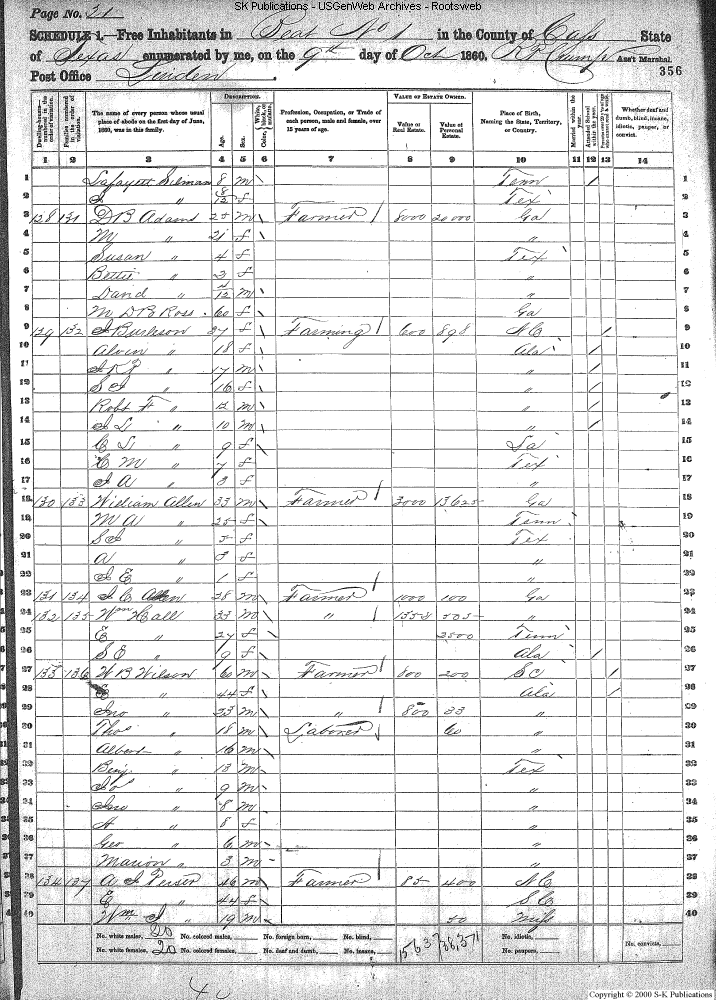 SK Publications - USGenWeb Archives - Rootsweb
Page No. 21
SCHEDULE 1.—Free Inhabitants in Beat No 1 in the County of Cass State
of Texas enumerated by me, on the 9th day of Oct 1860. Ass't Marshal.
Post Office Linden. 356
Dwelling-houses—numbered in the order of visitation. Families numbered in the order of visitation. The name of every person whose usual place of abode on the first day of June, 1860, was in this family. DESCRIPTION. Age. Sex. Color, White, black, or mulatto. Profession, Occupation, or Trade of each person, male and female, over 15 years of age. VALUE OF ESTATE OWNED. Value of Real Estate. Value of Personal Estate. Place of Birth, Naming the State, Territory, or Country. Married within the year. Attended School within the year. Whether deaf and dumb, blind, insane, idiotic, pauper, or convict.
1 2 3 4 5 6 7 8 9 10 11 12 13 14
1 Lafayett 8 m \ Tenn / 1
2 " 8/12 f Tex 2
3 128 131 D B Adams 25 m \ Farmer / 8000 20000 Ga 3
4 M " 21 f \ " 4
5 Susan " 4 f Tex 5
6 Bettie " 2 f " 6
7 David " /12 m \ " 7
8 M D B Ross 60 f Ga 8
9 129 132 Burkson 37 f \ Farming / 600 898 NC / 9
10 Alvin " 18 f \ Ala / 10
11 " 17 m \ " / 11
12 " 16 f \ " / 12
13 Robt F " 12 m \ " / 13
14 " 10 m \ " / 14
15 C L " 9 f \ La 15
16 C M " 7 f \ Tex 16
17 A " 2 f " 17
18 130 133 William Allen 33 m \ Farmer / 3000 13625 Ga 18
19 M A " 25 f \ Tenn 19
20 " 5 f Tex 20
21 A " 3 f " 21
22 E " 1 f " 22
23 131 134 C Allen 28 m \ Farmer / 1000 100 Ga 23
24 132 135 Wm Hall 33 m \ " / 1558 505 " 24
25 E " 27 f \ 2500 Tenn 25
26 S E " 9 f \ Ala / 26
27 133 136 W B Wilson 60 m \ Farmer / 800 200 SC / 27
28 " 44 f \ Ala / 28
29 Jno " 23 m \ " / 800 33 " 29
30 Thos " 18 m \ Laborer / 60 " 30
31 Albert " 16 m \ " 31
32 Benj " 13 m Tex 32
33 Jo " 9 m " 33
34 " 8 m " 34
35 " 8 f " 35
36 Geo " 6 m " 36
37 Marion " 3 m " 37
38 134 137 A J 46 m \ Farmer / 85 400 NC 38
39 E " 44 f \ SC 39
40 Wm " 19 m \ 50 Miss 40
No. white males, 20 No. colored males, No. foreign born, No. blind, No. idiotic, No. convicts,
No. white females, 20 No. colored females, No. deaf and dumb, No. insane, No. paupers,
Copyright © 2000 S-K Publications